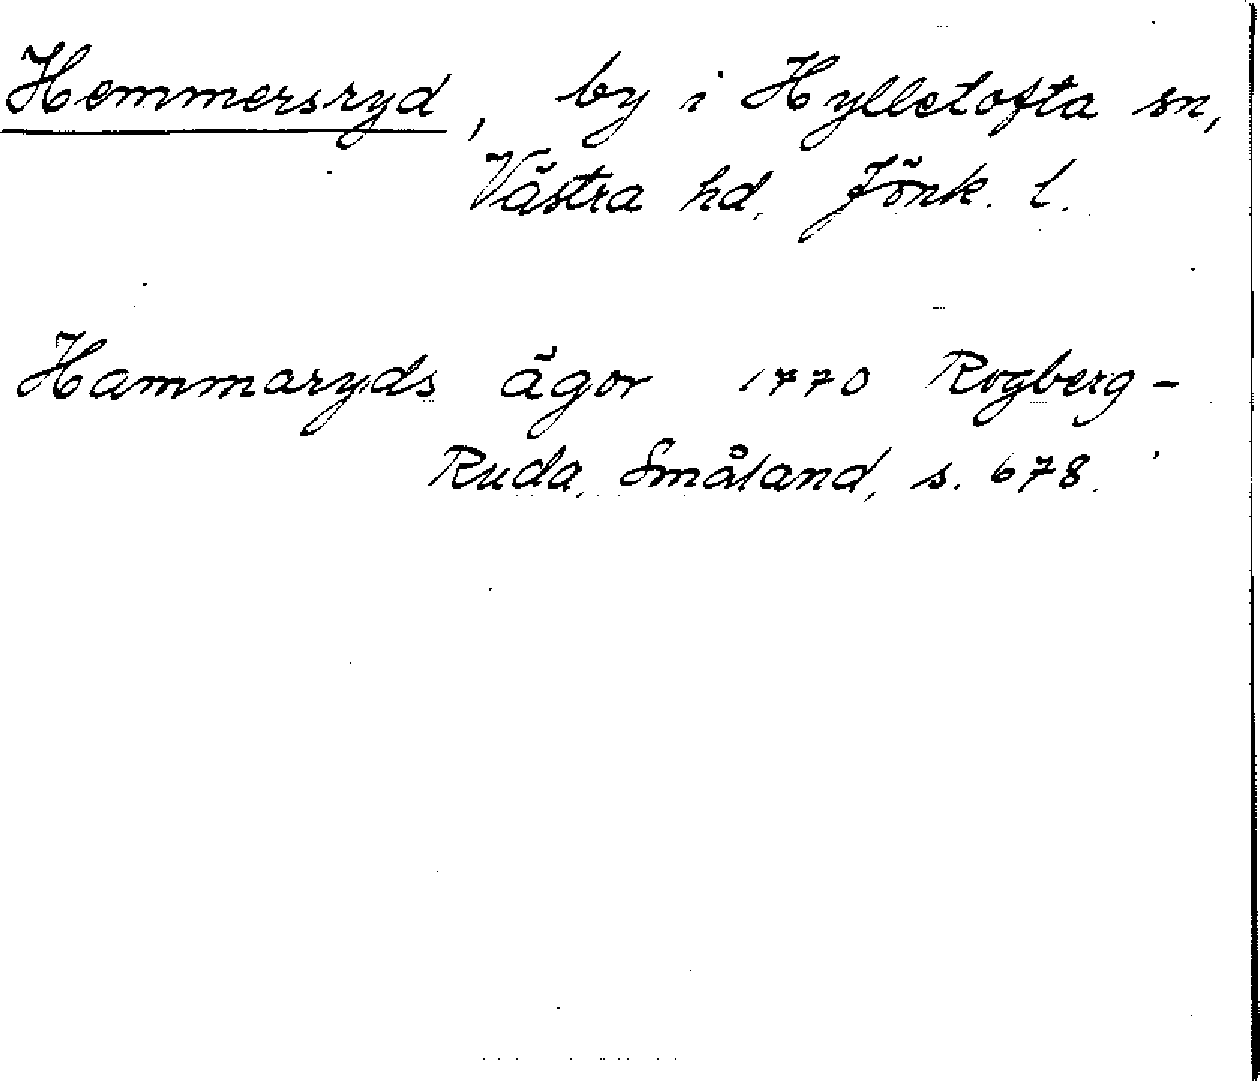 Hemmersryd, by i Hylletofta sn,
Västra hd. Jönk. l.
Hammaryds ägor 1770 Rogberg-
Ruda, Småland, s. 678.